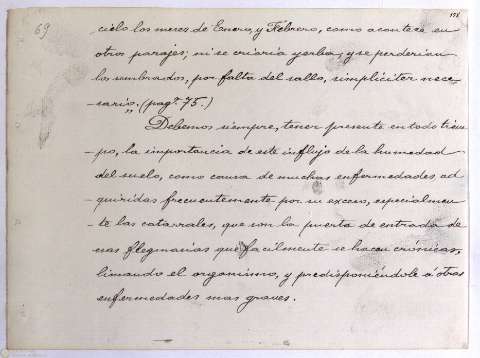 69
158
cielo los meses de Enero, y Febrero, como acontece en
otros parajes; ni se criaria yerba, y se perderian
los sembrados, por falta del sallo, simpliciter nece-
-sario." (pagª. 75.)
Debemos, siempre, tener presente en todo tiem-
po, la importancia de este influjo de la humedad
del suelo, como causa de muchas enfermedades, ad-
-quiridas frecuentemente por su exceso, especialmen-
-te las catarrales, que son la puerta de entrada de
unas flegmasías que facilmente se hacen crónicas,
limando el organismo, y predisponiéndole á otras
enfermedades mas graves.